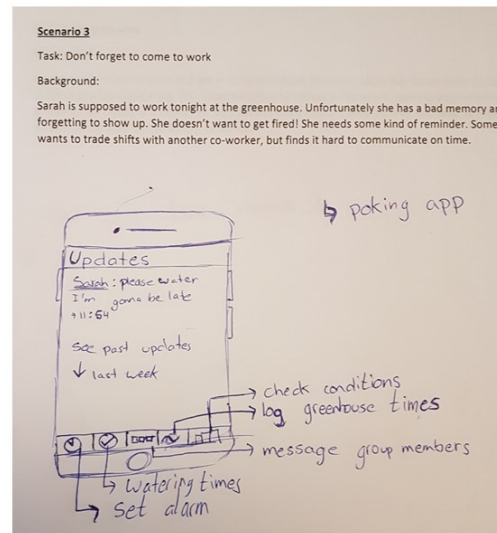 Scenario 3
Task: Don't forget to come to work
Background:
Sarah is supposed to work tonight at the greenhouse. Unfortunately she has a bad memory
forgetting to show up. She doesn't want to get fired! She needs some kind of reminder.
wants to trade shifts with another co-worker, but finds it hard to communicate on time.
↳ poking app
Updates
Sarah: please water
I'm gonna be late
11:54
see past updates
↓ last week
check conditions
log greenhouse times
message group members
watering times
set alarm